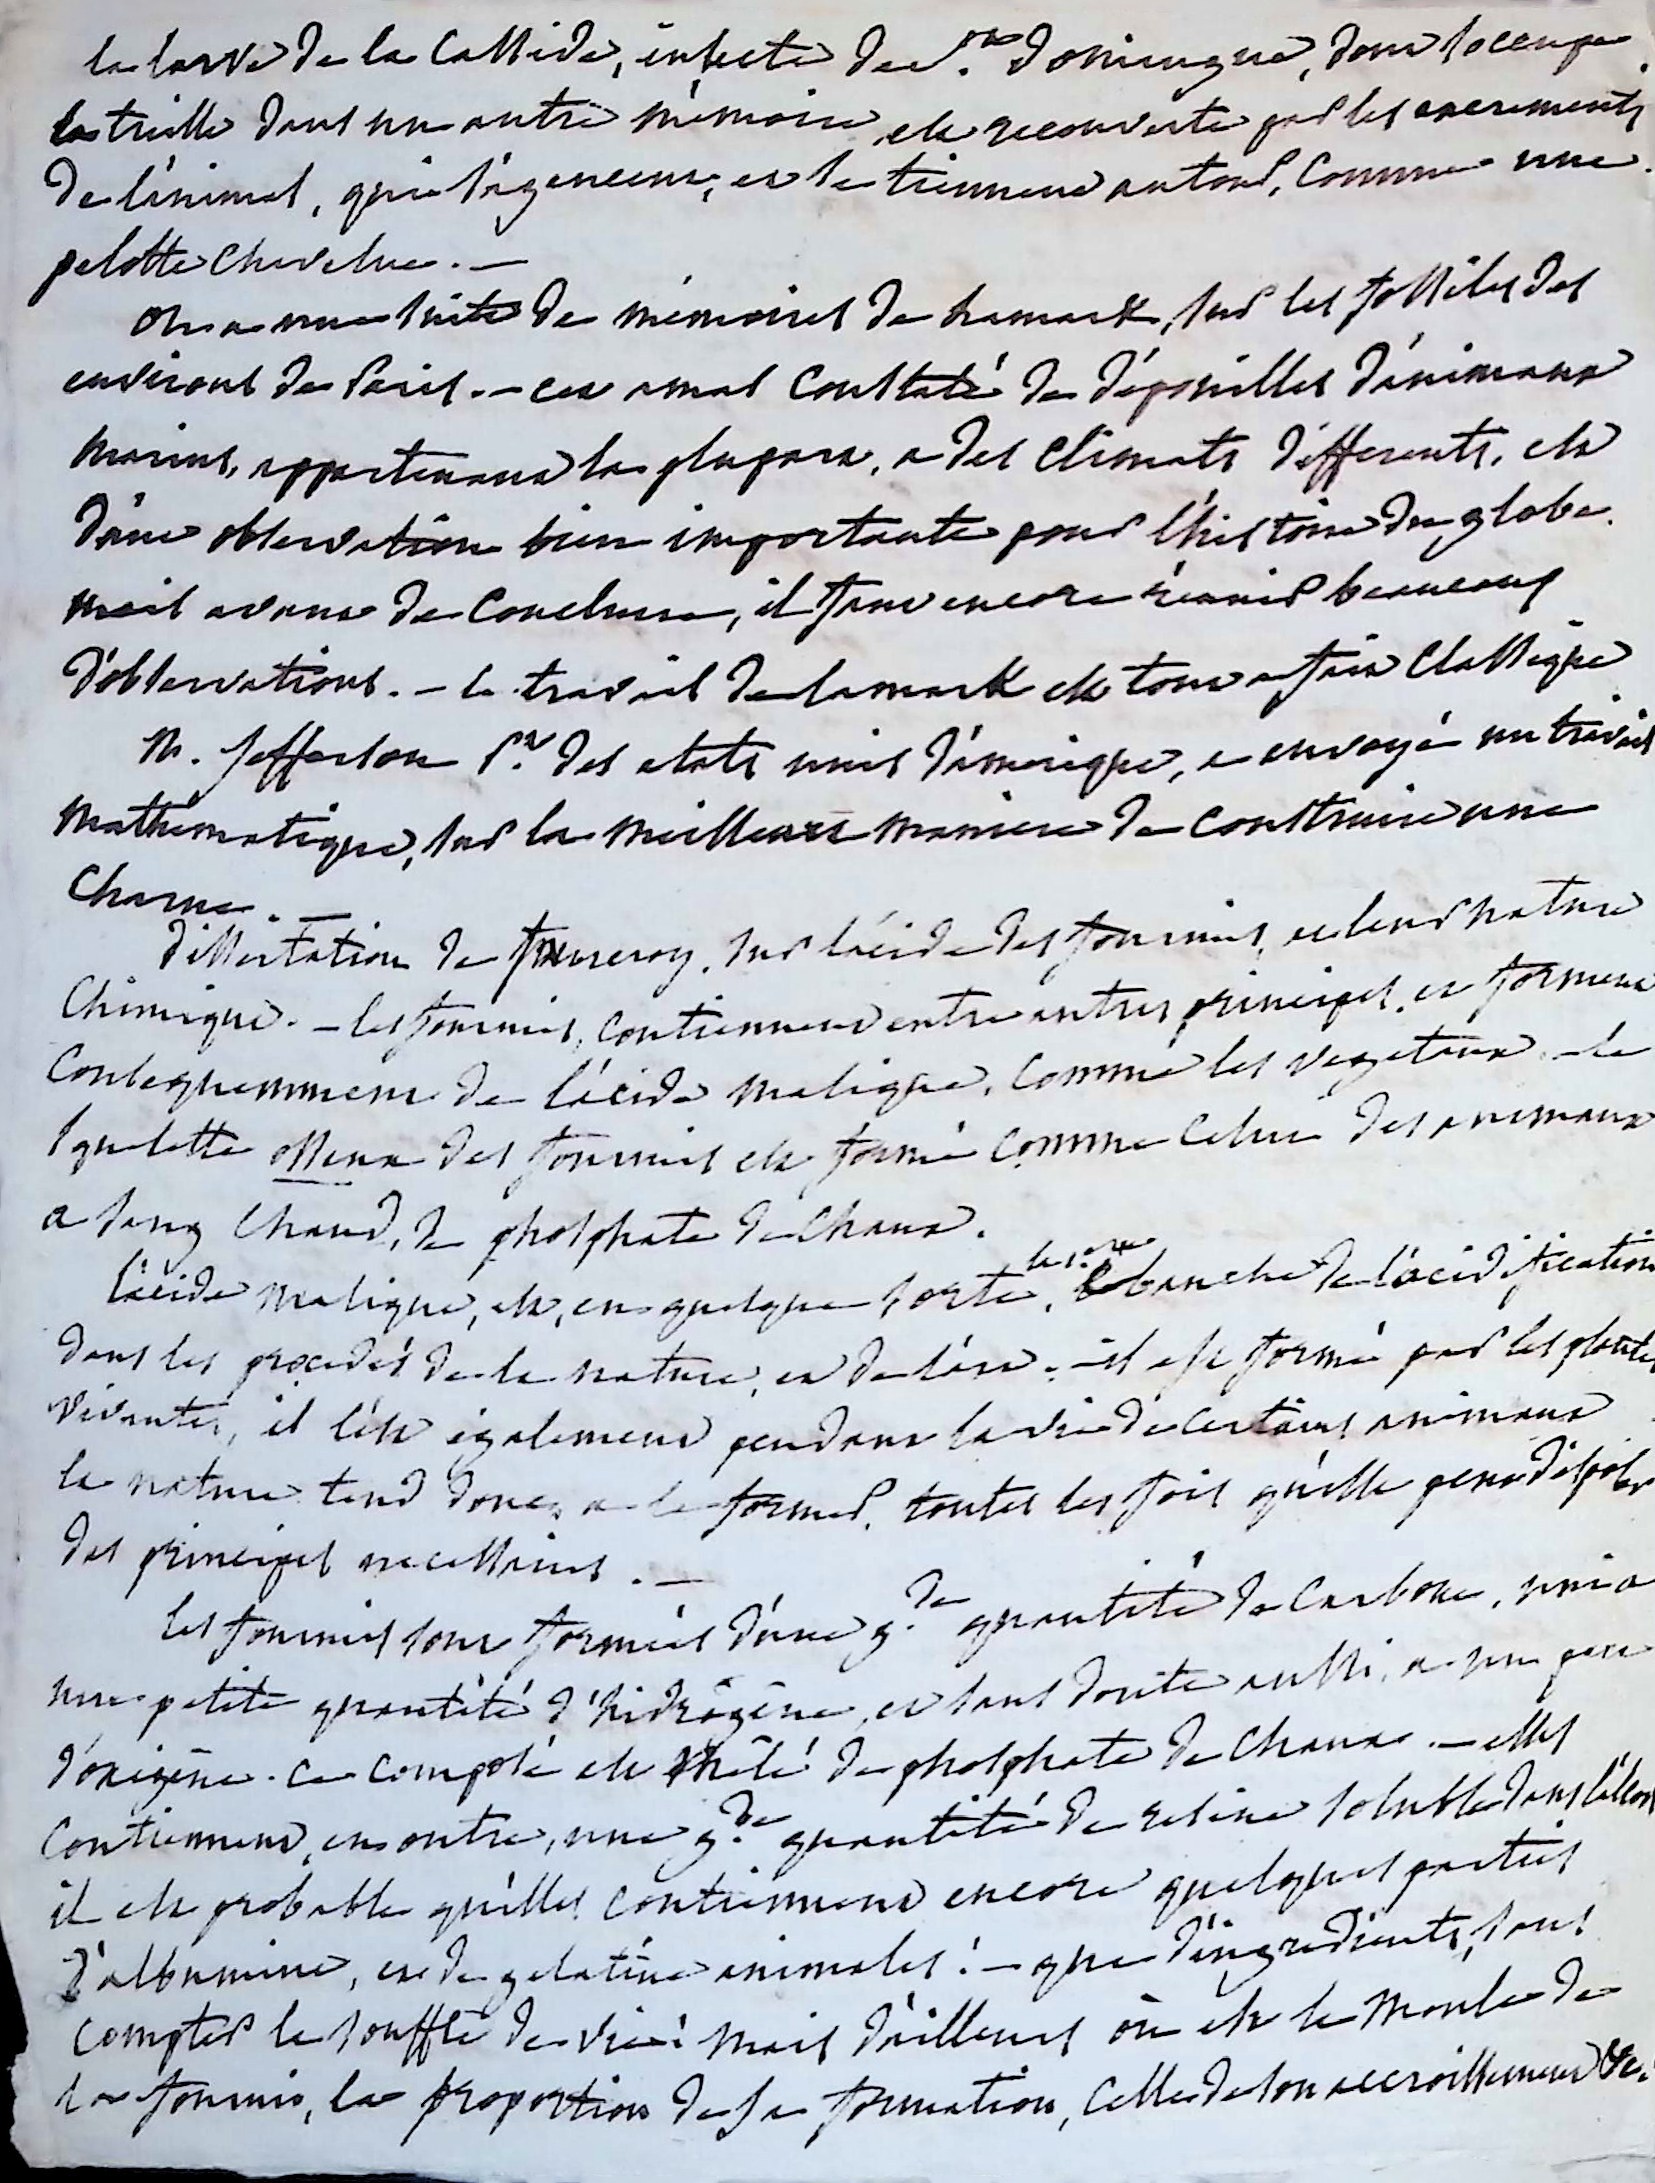 la larve de la Casside, insecte de St. Domingue, dont s'occupe
latreille dans un autre mémoire est recouverte par les excrements
de l'animal, qui s'agencent, et se tiennent autour, comme une
pelotte chevelue. —
On a une suite de mémoires de Lamark, sur les fossiles des
environs de Paris. — cet amas constaté de dépouilles d'animaux
marins, appartenant la plupart, a des climats differents, est
d'une observation bien importante pour l'histoire du globe.
mais avant de conclure, il faut encore réunir beaucoup
d'observations. — le travail de lamark est tout a fait classique
M. Jefferson Pt. des etats unis d'amerique, a envoyé un travail
mathématique, sur la meilleure maniere de construire une
charue. —
dissertation de fourcroy, sur l'acide des fourmis, et leur nature
chimique. — les fourmis, contiennent entre autres principes, et forment
consequemment de l'acide malique, comme les vegetaux. — le
squelette osseux des fourmis est formé comme celui des animaux
a sang chaud, de phosphate de chaux.
l'acide malique, est, en quelque sorte, la 1ere ebauche de l'acidification
dans les procedés de la nature, et de l'art. — il est formé par les plantes
vivantes, il l'est également pendant la vie de certains animaux
la nature tend donc, a le former, toutes les fois qu'elle peut disposer
des principes necessaires. —
les fourmis sont formées d'une gde quantité de carbone, uni a
une petite quantité d'hidrogène, et sans doute aussi, a un peu
d'oxigène. ce composé est mêlé de phosphate de chaux. — elles
contiennent, en outre, une gde quantité de resine soluble dans l'alcool
il est probable qu'elles contiennent encore quelques parties
d'albumine, et de gelatine animales! — que d'ingredients, sans
compter le souffle de vie! mais d'ailleurs où est le moule de
la fourmi, la proportion de sa formation, celle de son accroissement &c.